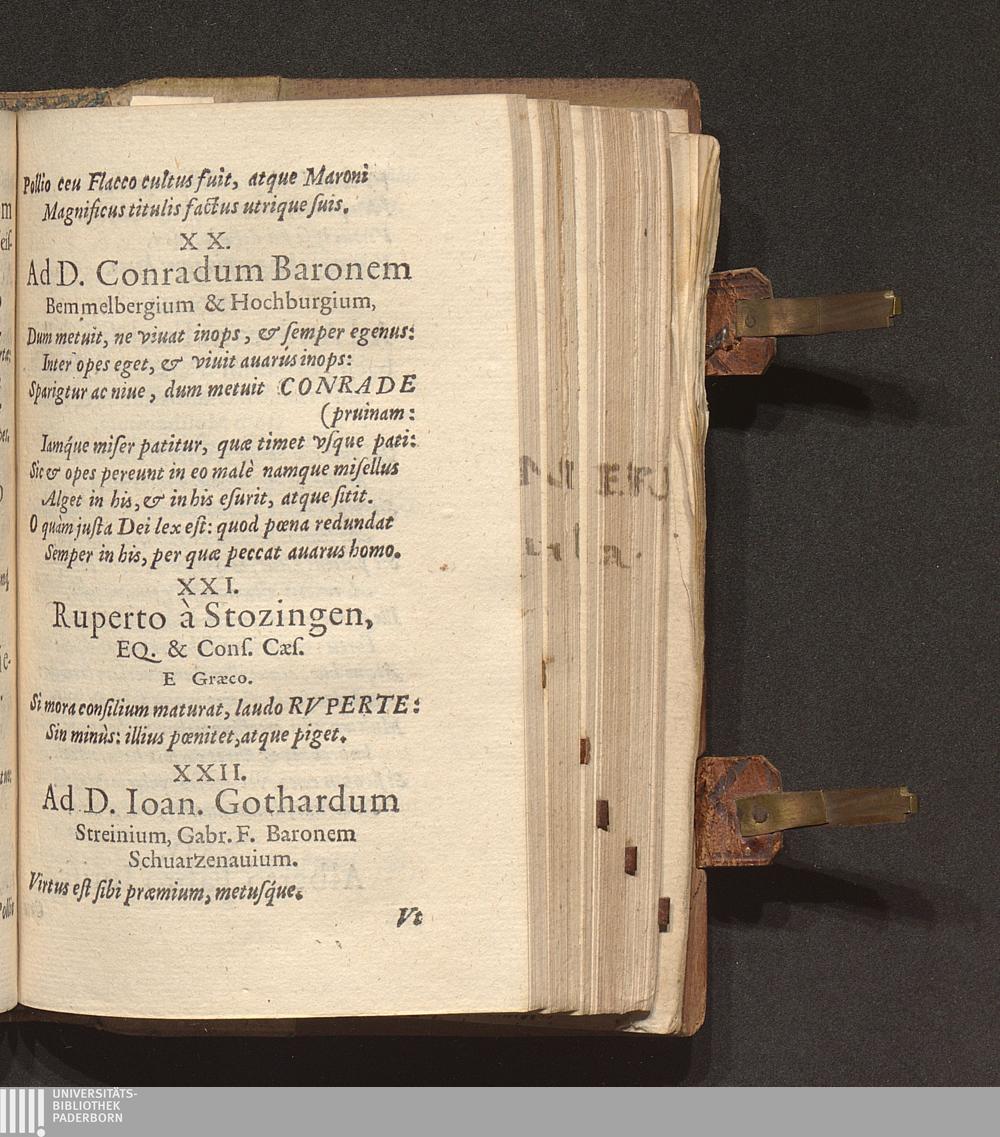 Pollio ceu Flacco cultus fuit, atque Maroni
Magnificus titulis factus utrique ſuis.
XX.
Ad D. Conradum Baronem
Bemmelbergium & Hochburgium,
Dum metuit, ne viuat inops, & ſemper egenus:
Inter opes eget, & viuit auarus inops:
Sparigtur ac niue, dum metuit CONRADE
(pruinam:
Iamq́ue miſer patitur, quæ timet vſque pati:
Sic & opes pereunt in eo malè namque miſellus
Alget in his, & in his eſurit, atque ſitit.
O quàm juſta Dei lex eſt: quod pœna redundat
Semper in his, per quæ peccat auarus homo.
XXI.
Ruperto à Stozingen,
EQ. & Conſ. Cæſ.
E Græco.
Si mora conſilium maturat, laudo RVPERTE:
Sin minùs: illius pœnitet, atque piget.
XXII.
Ad D. Ioan. Gothardum
Streinium, Gabr. F. Baronem
Schuarzenauium.
Virtus eſt ſibi præmium, metuſq́ue.
Vt
UNIVERSITÄTS-
BIBLIOTHEK
PADERBORN